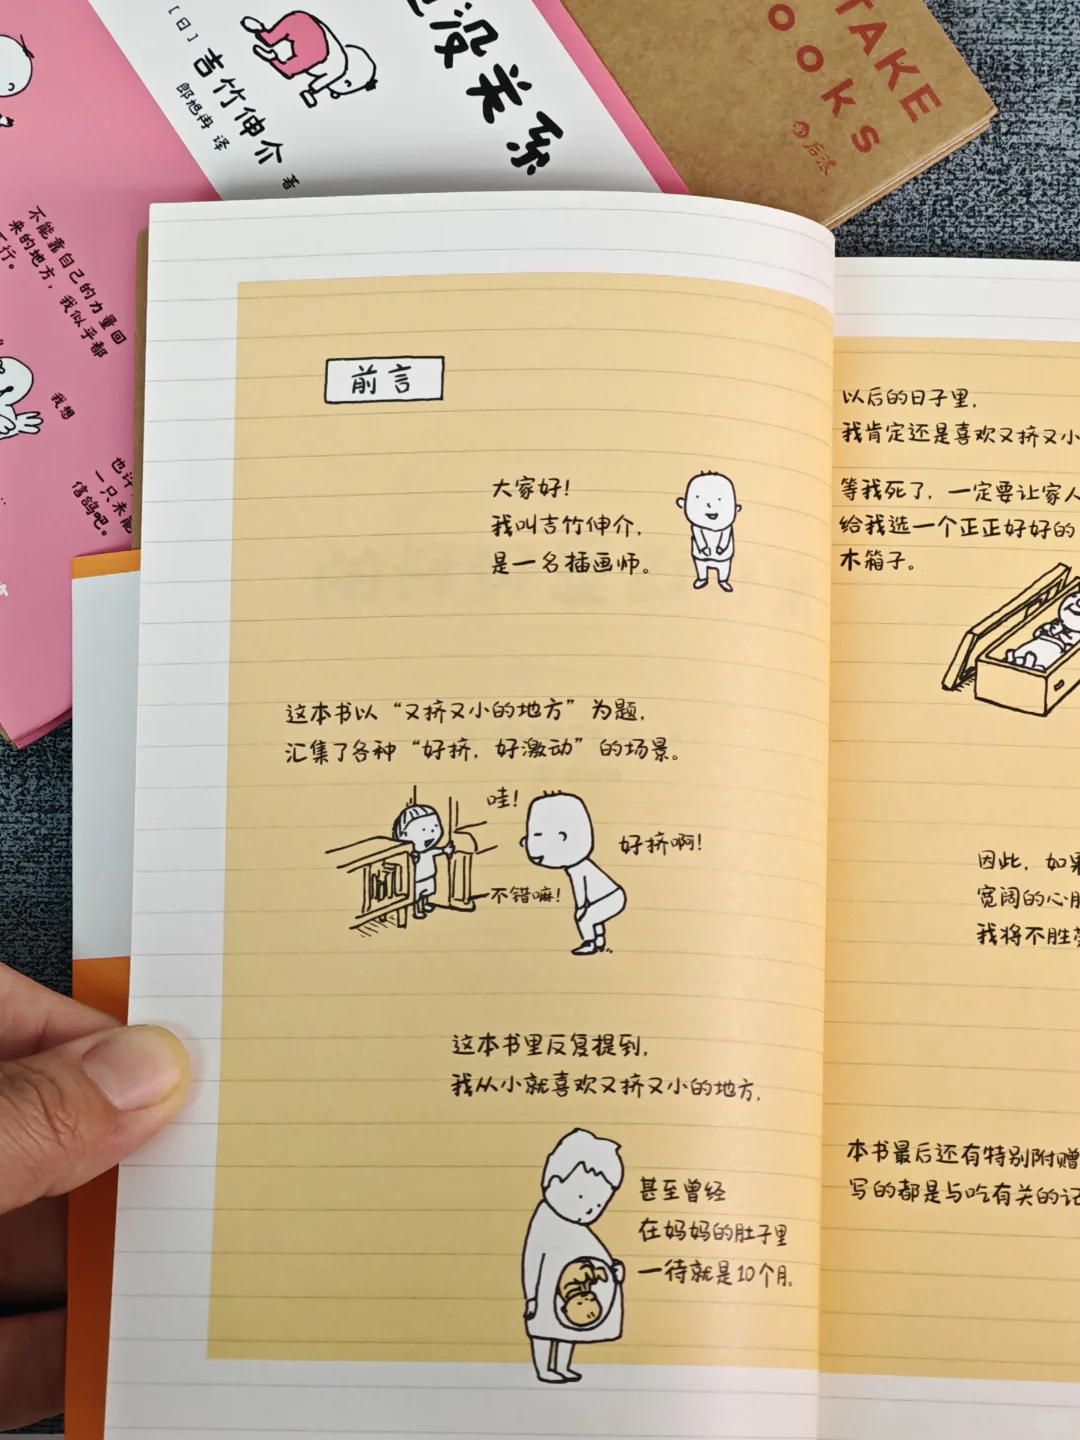 没关系
[日]吉竹伸介 著
郎旭冉 译
TAKE
OOKS
后浪
不能靠自己的力量回
来的地方，我似乎都
不行。
我想
也许
一只未能
信鸽吧。
前言
大家好！
我叫吉竹伸介，
是一名插画师。
这本书以“又挤又小的地方”为题，
汇集了各种“好挤，好激动”的场景。
哇！
好挤啊！
不错嘛！
这本书里反复提到，
我从小就喜欢又挤又小的地方，
甚至曾经
在妈妈的肚子里
一待就是10个月。
以后的日子里，
我肯定还是喜欢又挤又小
等我死了，一定要让家人
给我选一个正正好好的
木箱子。
因此，如果
宽阔的心
我将不胜
本书最后还有特别附赠
写的都是与吃有关的记